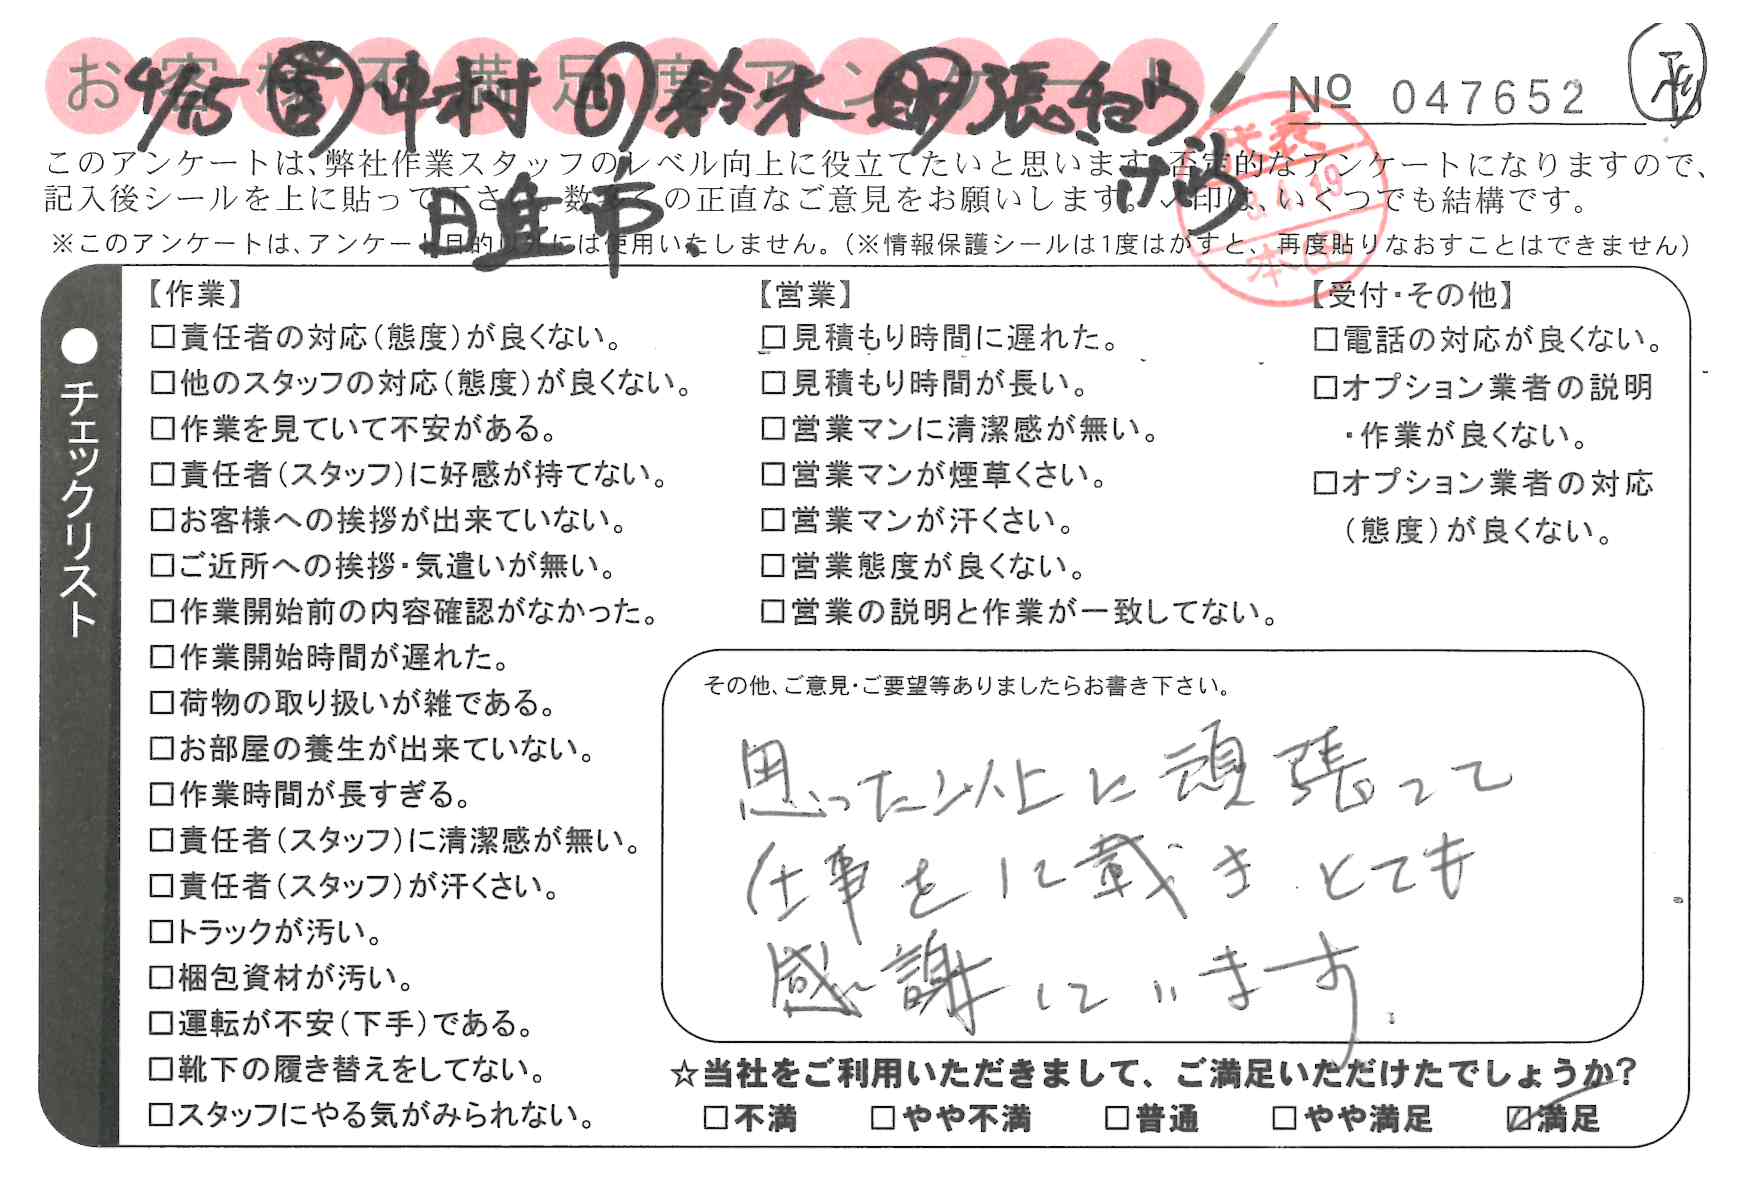 お客様不満足度アンケート
4/15 営 中村 リ 鈴木
№ 047652
このアンケートは、弊社作業スタッフのレベル向上に役立てたいと思います。否定的なアンケートになりますので、
記入後シールを上に貼って下さい。数多くの正直なご意見をお願いします。レ印は、いくつでも結構です。
※このアンケートは、アンケート目的以外には使用いたしません。(※情報保護シールは1度はがすと、再度貼りなおすことはできません)
代表
3.4.19
本田
●チェックリスト
【作業】
□責任者の対応(態度)が良くない。
□他のスタッフの対応(態度)が良くない。
□作業を見ていて不安がある。
□責任者(スタッフ)に好感が持てない。
□お客様への挨拶が出来ていない。
□ご近所への挨拶・気遣いが無い。
□作業開始前の内容確認がなかった。
□作業開始時間が遅れた。
□荷物の取り扱いが雑である。
□お部屋の養生が出来ていない。
□作業時間が長すぎる。
□責任者(スタッフ)に清潔感が無い。
□責任者(スタッフ)が汗くさい。
□トラックが汚い。
□梱包資材が汚い。
□運転が不安(下手)である。
□靴下の履き替えをしてない。
□スタッフにやる気がみられない。
【営業】
□見積もり時間に遅れた。
□見積もり時間が長い。
□営業マンに清潔感が無い。
□営業マンが煙草くさい。
□営業マンが汗くさい。
□営業態度が良くない。
□営業の説明と作業が一致してない。
【受付・その他】
□電話の対応が良くない。
□オプション業者の説明
・作業が良くない。
□オプション業者の対応
(態度)が良くない。
その他、ご意見・ご要望等ありましたらお書き下さい。
思った以上に頑張って
仕事をして戴き とても
感謝しています.
☆当社をご利用いただきまして、ご満足いただけたでしょうか?
□不満 □やや不満 □普通 □やや満足 ☑満足